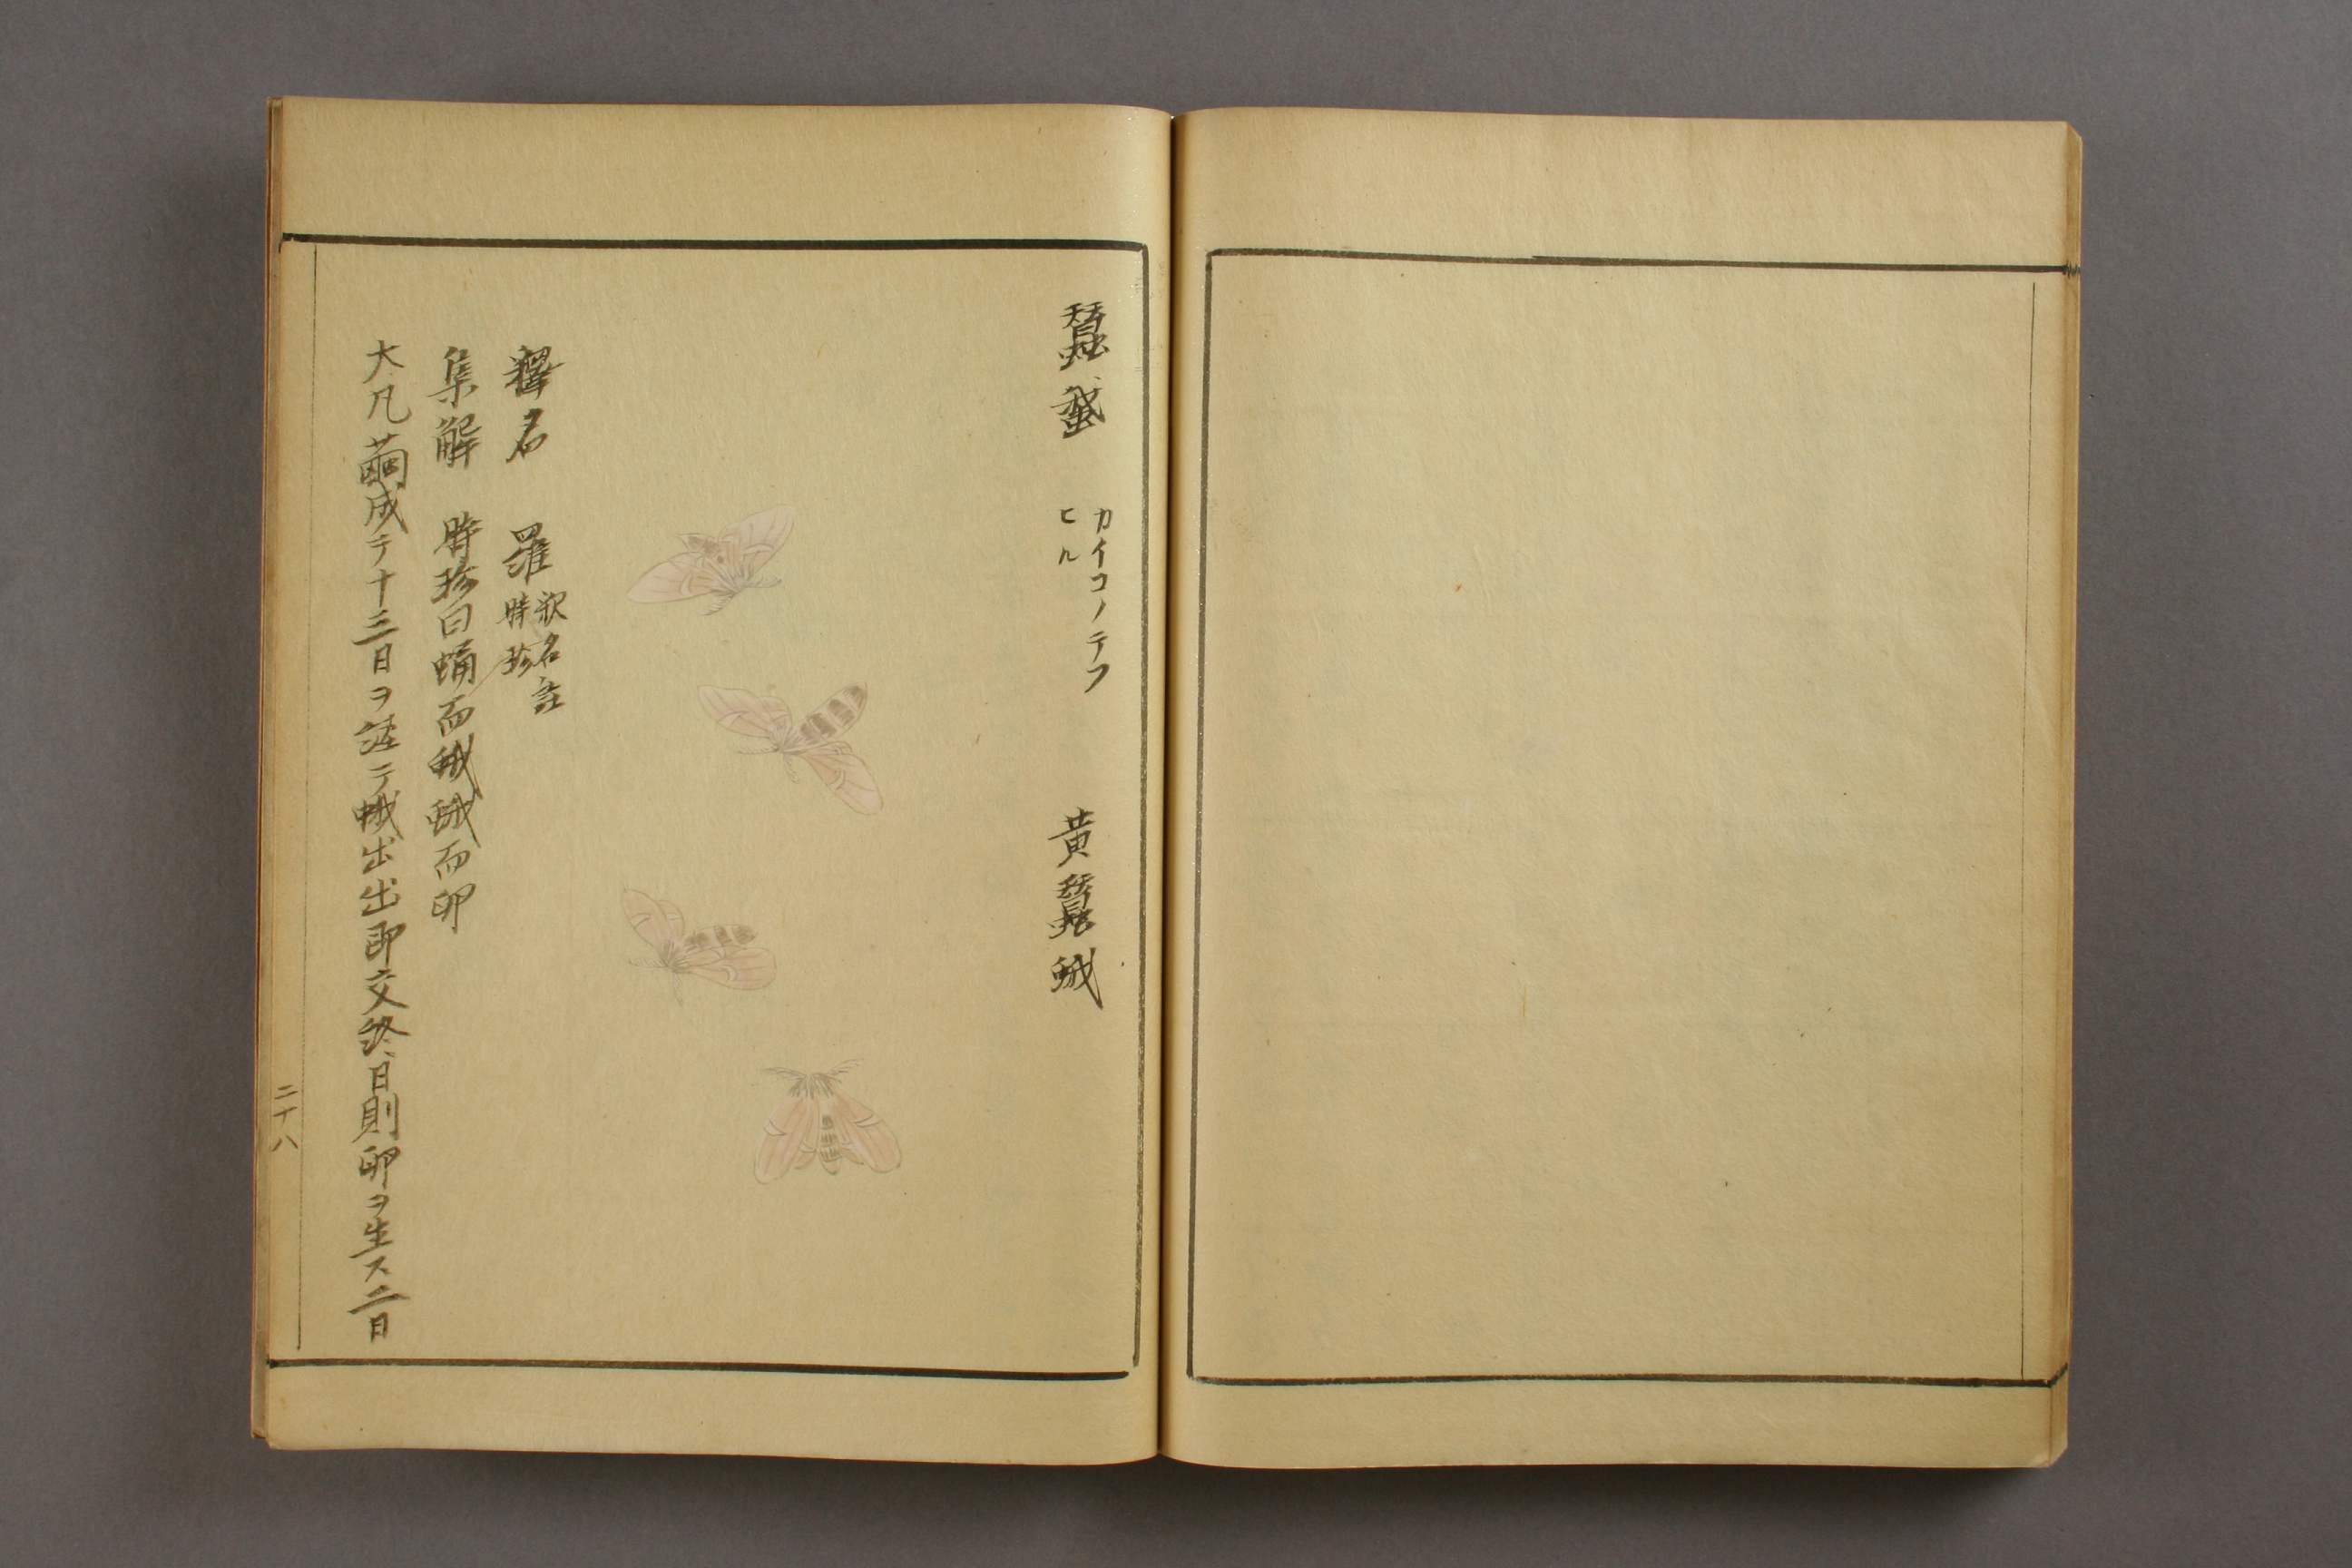 蠶蛾 カイコノテフ
ヒル
黄蠶蛾
釋名 羅 釈名註
時珍
集解 時珍曰蛹而蛾蛾而卵
大凡繭成テ十三日ヲ経テ蛾出出即交終日則卵ヲ生ス二日
二十八